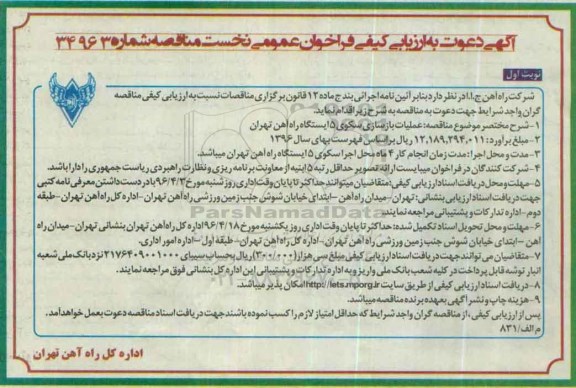 آگهی دعوت به ارزیابی کیفی فراخوان عمومی نخست مناقصه شماره ۳۴۹۶۳
نوبت اول
شرکت راه آهن ج.ا.ا در نظر دارد بنابر آئین نامه اجرائی بند ج ماده ۱۲ قانون برگزاری مناقصات نسبت به ارزیابی کیفی مناقصه
گران واجد شرایط جهت دعوت به مناقصه به شرح زیر اقدام نماید.
۱- شرح مختصر موضوع مناقصه: عملیات بازسازی سکوی ۵ ایستگاه راه آهن تهران
۲- مبلغ برآورد: ۱۲,۱۸۹,۲۹۴,۰۱۱ ریال بر اساس فهرست بهای سال ۱۳۹۶
۳- مدت و محل اجرا: مدت زمان انجام کار ۴ ماه محل اجرا سکوی ۵ ایستگاه راه آهن تهران میباشد.
۴- شرکت کنندگان در فراخوان میبایست ارائه تصویر حداقل رتبه ۵ ابنیه از معاونت برنامه ریزی و نظارت راهبردی ریاست جمهوری را دارا باشد.
۵- مهلت و محل دریافت اسناد ارزیابی کیفی: متقاضیان میتوانند حداکثر تا پایان وقت اداری روز شنبه مورخ ۹۶/۴/۳ با در دست داشتن معرفی نامه کتبی
جهت دریافت اسناد ارزیابی بنشانی: تهران- میدان راه آهن- ابتدای خیابان شوش جنب زمین ورزشی راه آهن- اداره کل راه آهن تهران- طبقه
دوم- اداره تدارکات و پشتیبانی مراجعه نمایند.
۶- مهلت و محل تحویل اسناد تکمیل شده: حداکثر تا پایان وقت اداری روز یکشنبه مورخ ۹۶/۴/۱۸ اداره کل راه آهن تهران بنشانی تهران- میدان راه
آهن- ابتدای خیابان شوش جنب زمین ورزشی راه آهن- اداره کل راه آهن تهران- طبقه اول- اداره امور اداری.
۷- متقاضیان می توانند جهت دریافت اسناد ارزیابی کیفی مبلغ سی هزار (۳۰۰۰۰) ریال بحساب سیبای ۲۱۷۶۴۰۹۰۰۱۰۰۰ نزد بانک ملی شعبه
انبار توشه قابل پرداخت در کلیه شعب بانک ملی واریز و به اداره تدارکات و پشتیبانی این اداره کل بنشانی فوق مراجعه نمایند.
۸- دریافت اسناد ارزیابی کیفی از طریق سایت http://iets.mporg.ir امکان پذیر میباشد.
۹- هزینه چاپ و نشر آگهی بعهده برنده مناقصه میباشد.
پس از ارزیابی کیفی، از مناقصه گران واجد شرایط که حداقل امتیاز لازم را کسب نموده باشند جهت دریافت اسناد مناقصه دعوت بعمل خواهد آمد.
م الف/۸۳۱
اداره کل راه آهن تهران
ParsNamadData